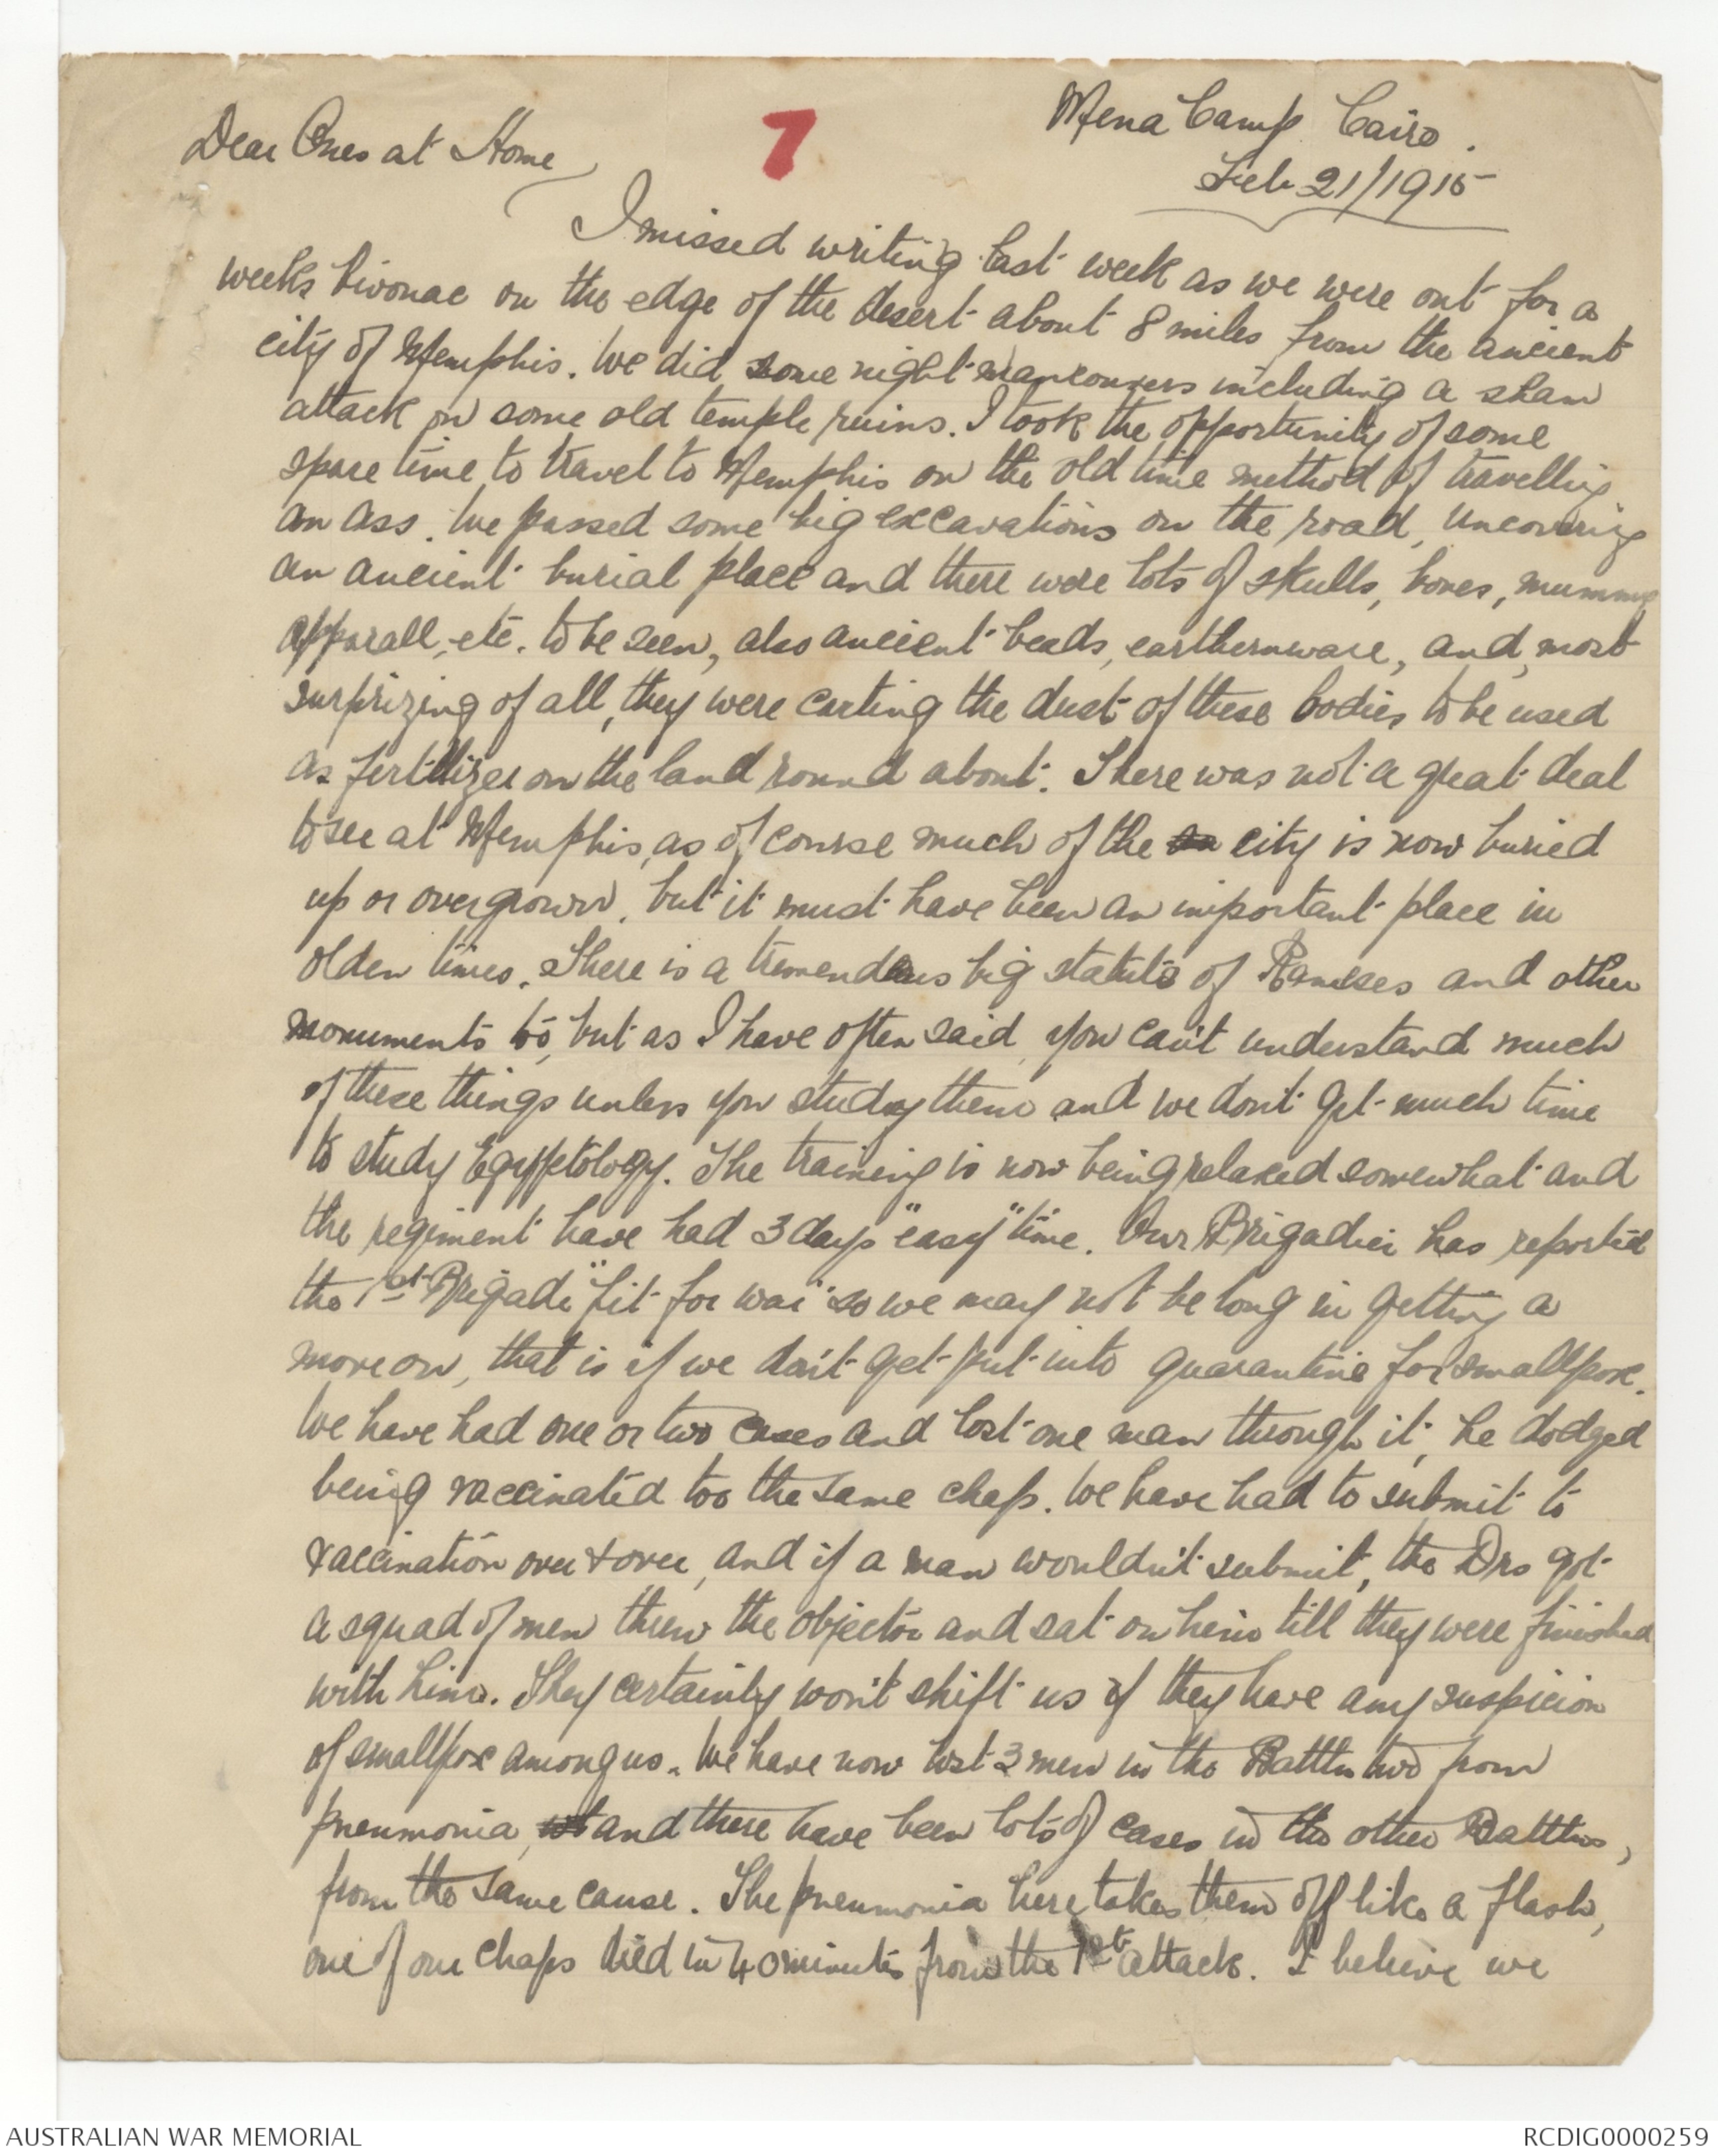 7
Mena Camp Cairo.
Feb 21/1915
Dear Ones at Home
I missed writing last week as we were out for a
weeks bivouac on the edge of the desert about 8 miles from the ancient
city of Memphis. We did some night including a sham
attack on some old temple ruins. I took the opportunity of some
spare time to travel to Memphis on the old time method of travelling
an ass. We passed some big excavations on the road, uncovering
an ancient burial place and there were lots of skulls, bones, mummy
apparall, etc. to be seen, also ancient beads, earthernware, and, most
surprizing of all, they were carting the dust of these bodies to be used
as fertilizer on the land round about. There was not a great deal
to see at Memphis, as of course much of the city is now buried
up or overgrown, but it must have been an important place in
olden times. There is a tremendous big statute of Rameses and other
monuments too, but as I have often said, you can't understand much
of these things unless you study them and we don't get much time
to study Egyptology. The training is now being relaxed somewhat and
the regiment have had 3 days "easy" time. Our Brigadier has reported
the 1st Brigade "fit for war" so we may not be long in getting a
move on, that is if we don't get put into quarantine for smallpox.
We have had one or two cases and lost one man through it, he dodged
being vaccinated too the same chap. We have had to submit to
vaccination over & over, and if a man wouldn't submit, the Drs got
a squad of men threw the objector and sat on him till they were finished
with him. They certainly won't shift us if they have any suspicion
of smallpox among us. We have now lost 3 men in the Battln two from
pneumonia, and there have been lots of cases in the other Battlns,
from the same cause. The pneumonia here takes them off like a flash,
one of our chaps died in 40 minutes from the 1st attack. I believe we
AUSTRALIAN WAR MEMORIAL
RCDIG0000259